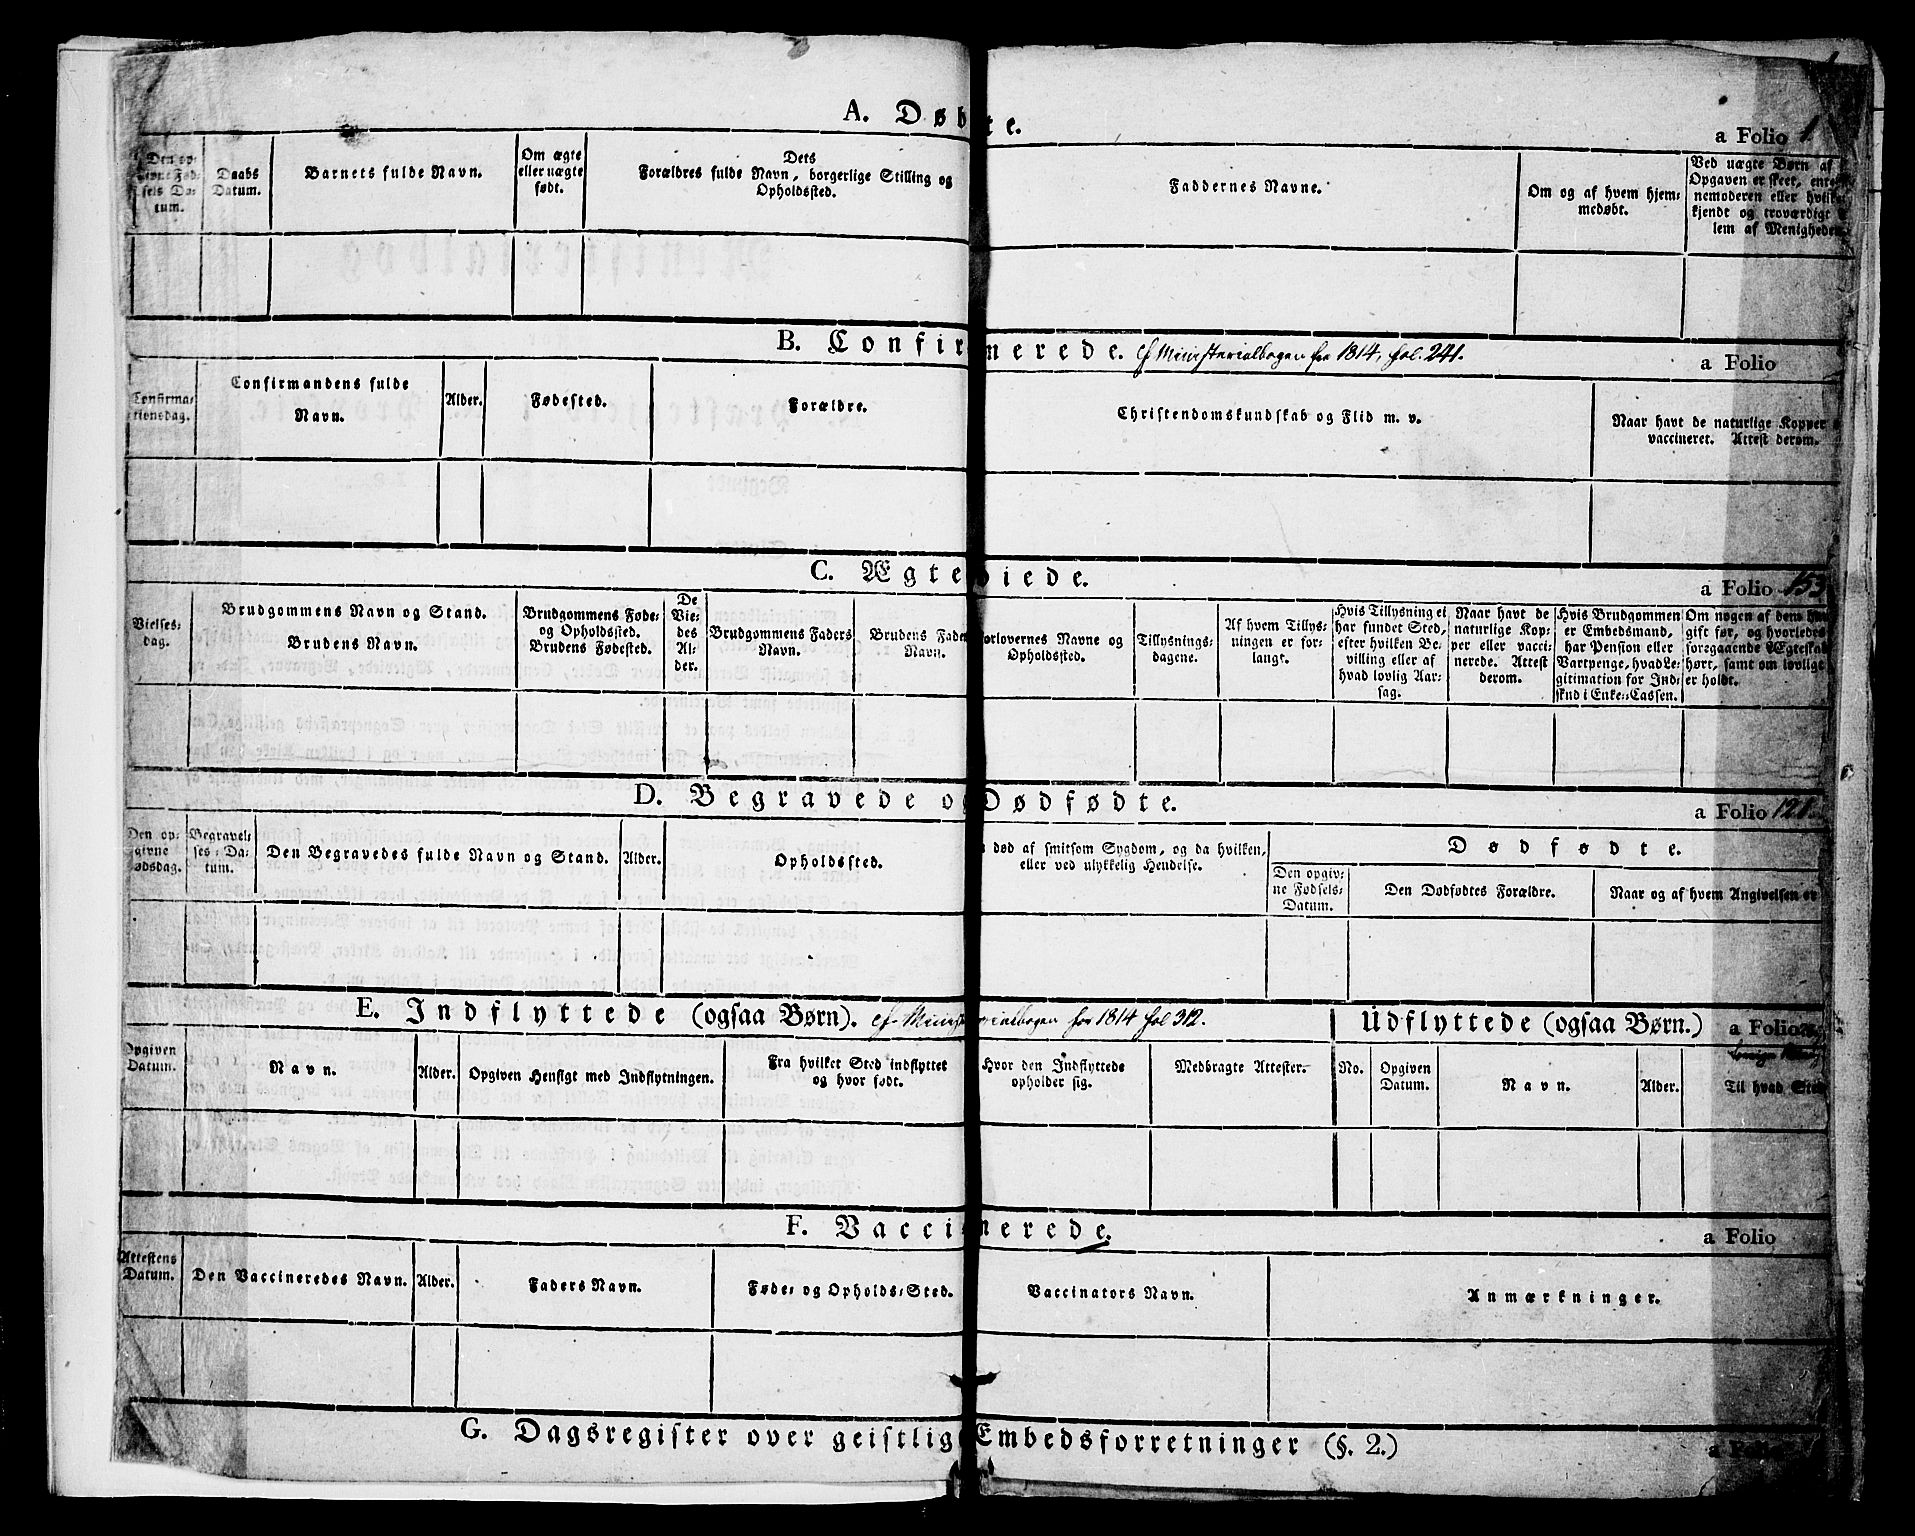 A. Døbte.
a Folio 1.
Den op-
givne Fød-
sels Da-
tum.
Daabs
Datum.
Barnets fulde Navn.
Om ægte
eller uægte
født.
Dets
Forældres fulde Navn, borgerlige Stilling og
Opholdssted.
Faddernes Navne.
Om og af hvem hjem-
medøbt.
Ved uægte Børn af
Opgaven er skeet, ent
nemoderen eller hvilk
kjendt og troværdigt
lem af Menigheden
B. Confirmerede. cf Ministerialbogen fra 1814, fol. 241.
a Folio
Confirma-
tionsdag.
Confirmandens fulde
Navn.
Alder.
Fødested.
Forældre.
Christendomskundskab og Flid m. v.
Naar havt de naturlige Kopper
vaccineret. Attest derom.
C. Ægteviede.
a Folio 153
Vielses-
dag.
Brudgommens Navn og Stand.
Brudens Navn.
Brudgommens Føde-
og Opholdssted.
Brudens Fødested.
De
Vie-
des
Al-
der.
Brudgommens Faders
Navn.
Brudens Fader
Navn.
orlovernes Navne og
Opholdssted.
Tillysnings-
dagene.
Af hvem Tillys-
ningen er for-
langt.
Hvis Tillysning ei
har fundet Sted,
efter hvilken Be-
villing eller af
hvad lovlig Aar-
sag.
Naar havt de
naturlige Kop-
per eller vacci-
nerede. Attest
derom.
Hvis Brudgommen
er Embedsmand,
har Pension eller
Vartpenge, hvad Le-
gitimation for Ind-
skud i Enke-Cassen.
Om nogen af dem har
gift før, og hvorledes
foregaaende Ægteskab
hørt, samt om lovligt
er holdt.
D. Begravede og Dødfødte.
a Folio 121.
Den op-
givne
Dødsdag.
Begravel-
ses-Da-
tum.
Den Begravedes fulde Navn og Stand.
Alder.
Opholdssted.
død af smitsom Sygdom, og da hvilken,
eller ved ulykkelig Hendelse.
Dødfødte.
Den opgiv-
ne Fødsels-
Datum.
Den Dødfødtes Forældre.
Naar og af hvem Angivelsen er
E. Indflyttede (ogsaa Børn). cf. Ministerialbogen fra 1814 fol 312.
Udflyttede (ogsaa Børn.)
a Folio
Opgiven
Datum.
Navn.
Alder.
Opgiven Hensigt med Indflytningen.
Fra hvilket Sted indflyttet
og hvor født.
Hvor den Indflyttede
opholder sig.
Medbragte Attester.
No.
Opgiven
Datum.
Navn.
Alder.
Til hvad Sted
F. Vaccinerede.
a Folio
Attestens
Datum.
Den Vaccineredes Navn.
Alder.
Faders Navn.
Føde- og Opholds-Sted.
Vaccinators Navn.
Anmærkninger.
G. Dagsregister over geistlige Embedsforretninger (§. 2.)
a Folio